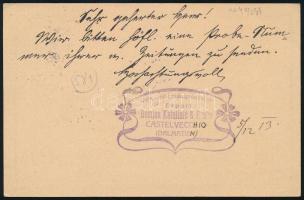 Sehr geherter Herr!
Wier bitten höfl. eine Probe-Num-
mer ihrer w. Zeitungen zu senden.
Hochachtungsvoll
Export
CASTELVECCHIO
(DALMATIEN)
5/12 13.